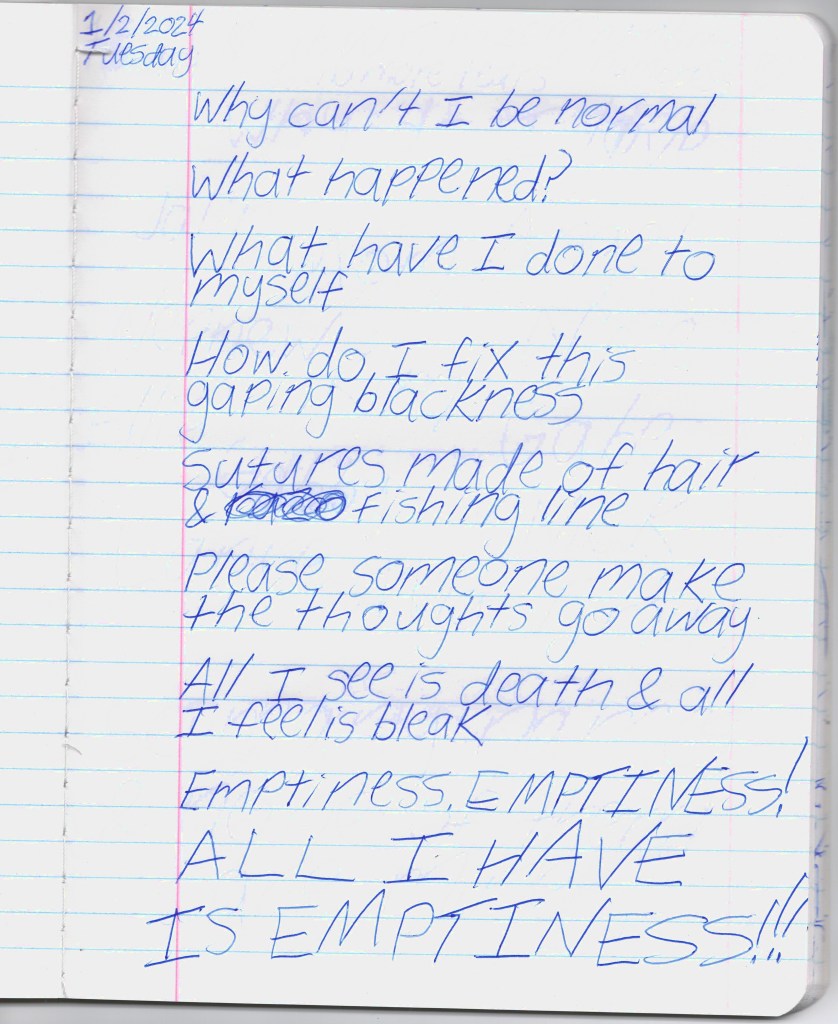 1/2/2024
Tuesday
Why can't I be normal
What happened?
What have I done to
myself
How do I fix this
gaping blackness
Sutures made of hair
& fishing line
Please someone make
the thoughts go away
All I see is death & all
I feel is bleak
Emptiness. EMPTINESS!
ALL I HAVE
IS EMPTINESS!!!